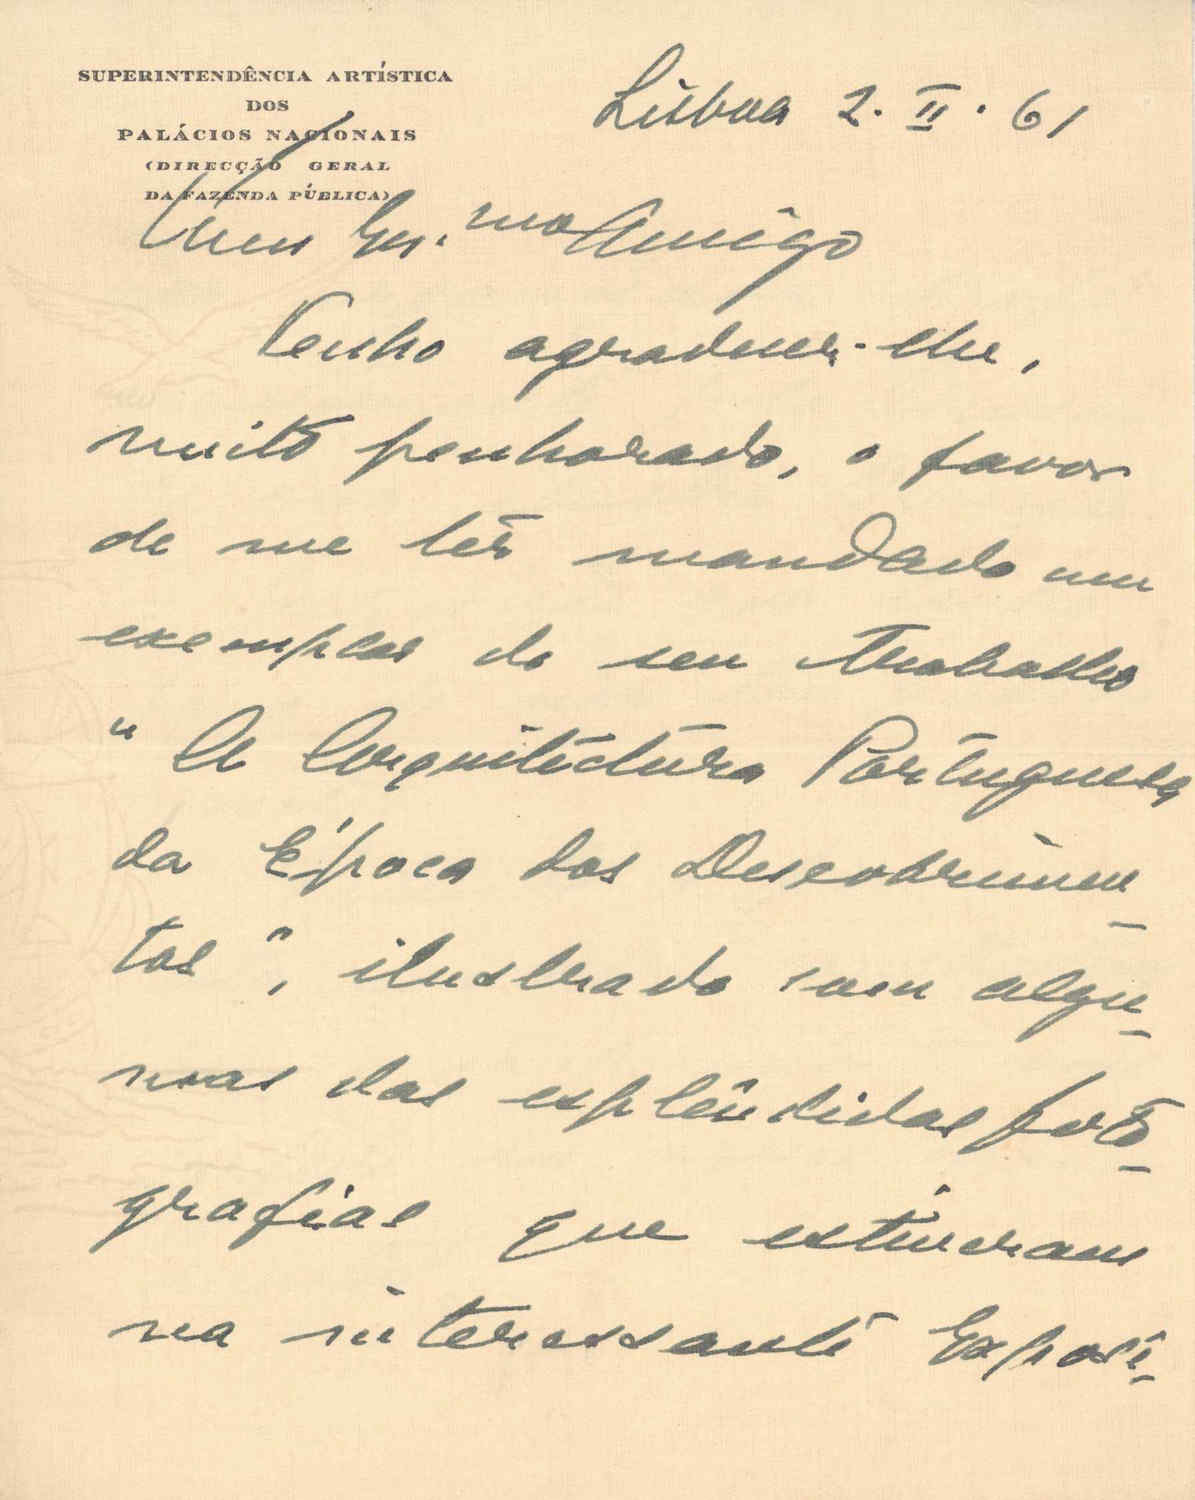 SUPERINTENDÊNCIA ARTÍSTICA
DOS
PALÁCIOS NACIONAIS
(DIRECÇÃO GERAL
DA FAZENDA PÚBLICA)
Lisboa 2. II. 61
Meu Ex.mo Amigo
Tenho agradecer-lhe,
muito penhorado, o favor
de me ter mandado um
exemplar do seu trabalho
"A Arquitectura Portuguesa
da Época dos Descobrimen-
tos", ilustrado com algu-
mas das esplêndidas foto-
grafias que estiveram
na interessante Exposi-